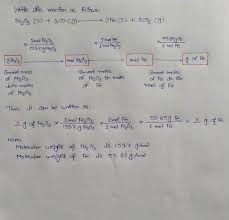 Write the reaction as follows:
Fe2O3 (s) + 3CO (g) → 2Fe (s) + 3CO2 (g)
× 1mol Fe2O3 / 159.7g Fe2O3
× 2mol Fe / 1mol Fe2O3
× 55.85g Fe / 1 mol Fe
g Fe2O3 → mol Fe2O3 → mol Fe → g of Fe
Convert mass of Fe2O3 into moles of Fe2O3
Convert moles of Fe2O3 to moles of Fe
Convert moles of Fe to the mass of Fe
Thus, it can be written as:
g of Fe2O3 × 1mol Fe2O3 / 159.7g Fe2O3 × 2mol Fe / 1mol Fe2O3 × 55.85g Fe / 1 mol Fe = g of Fe
Here,
Molecular weight of Fe2O3 is 159.7 g/mol
Molecular weight of Fe is 55.85 g/mol